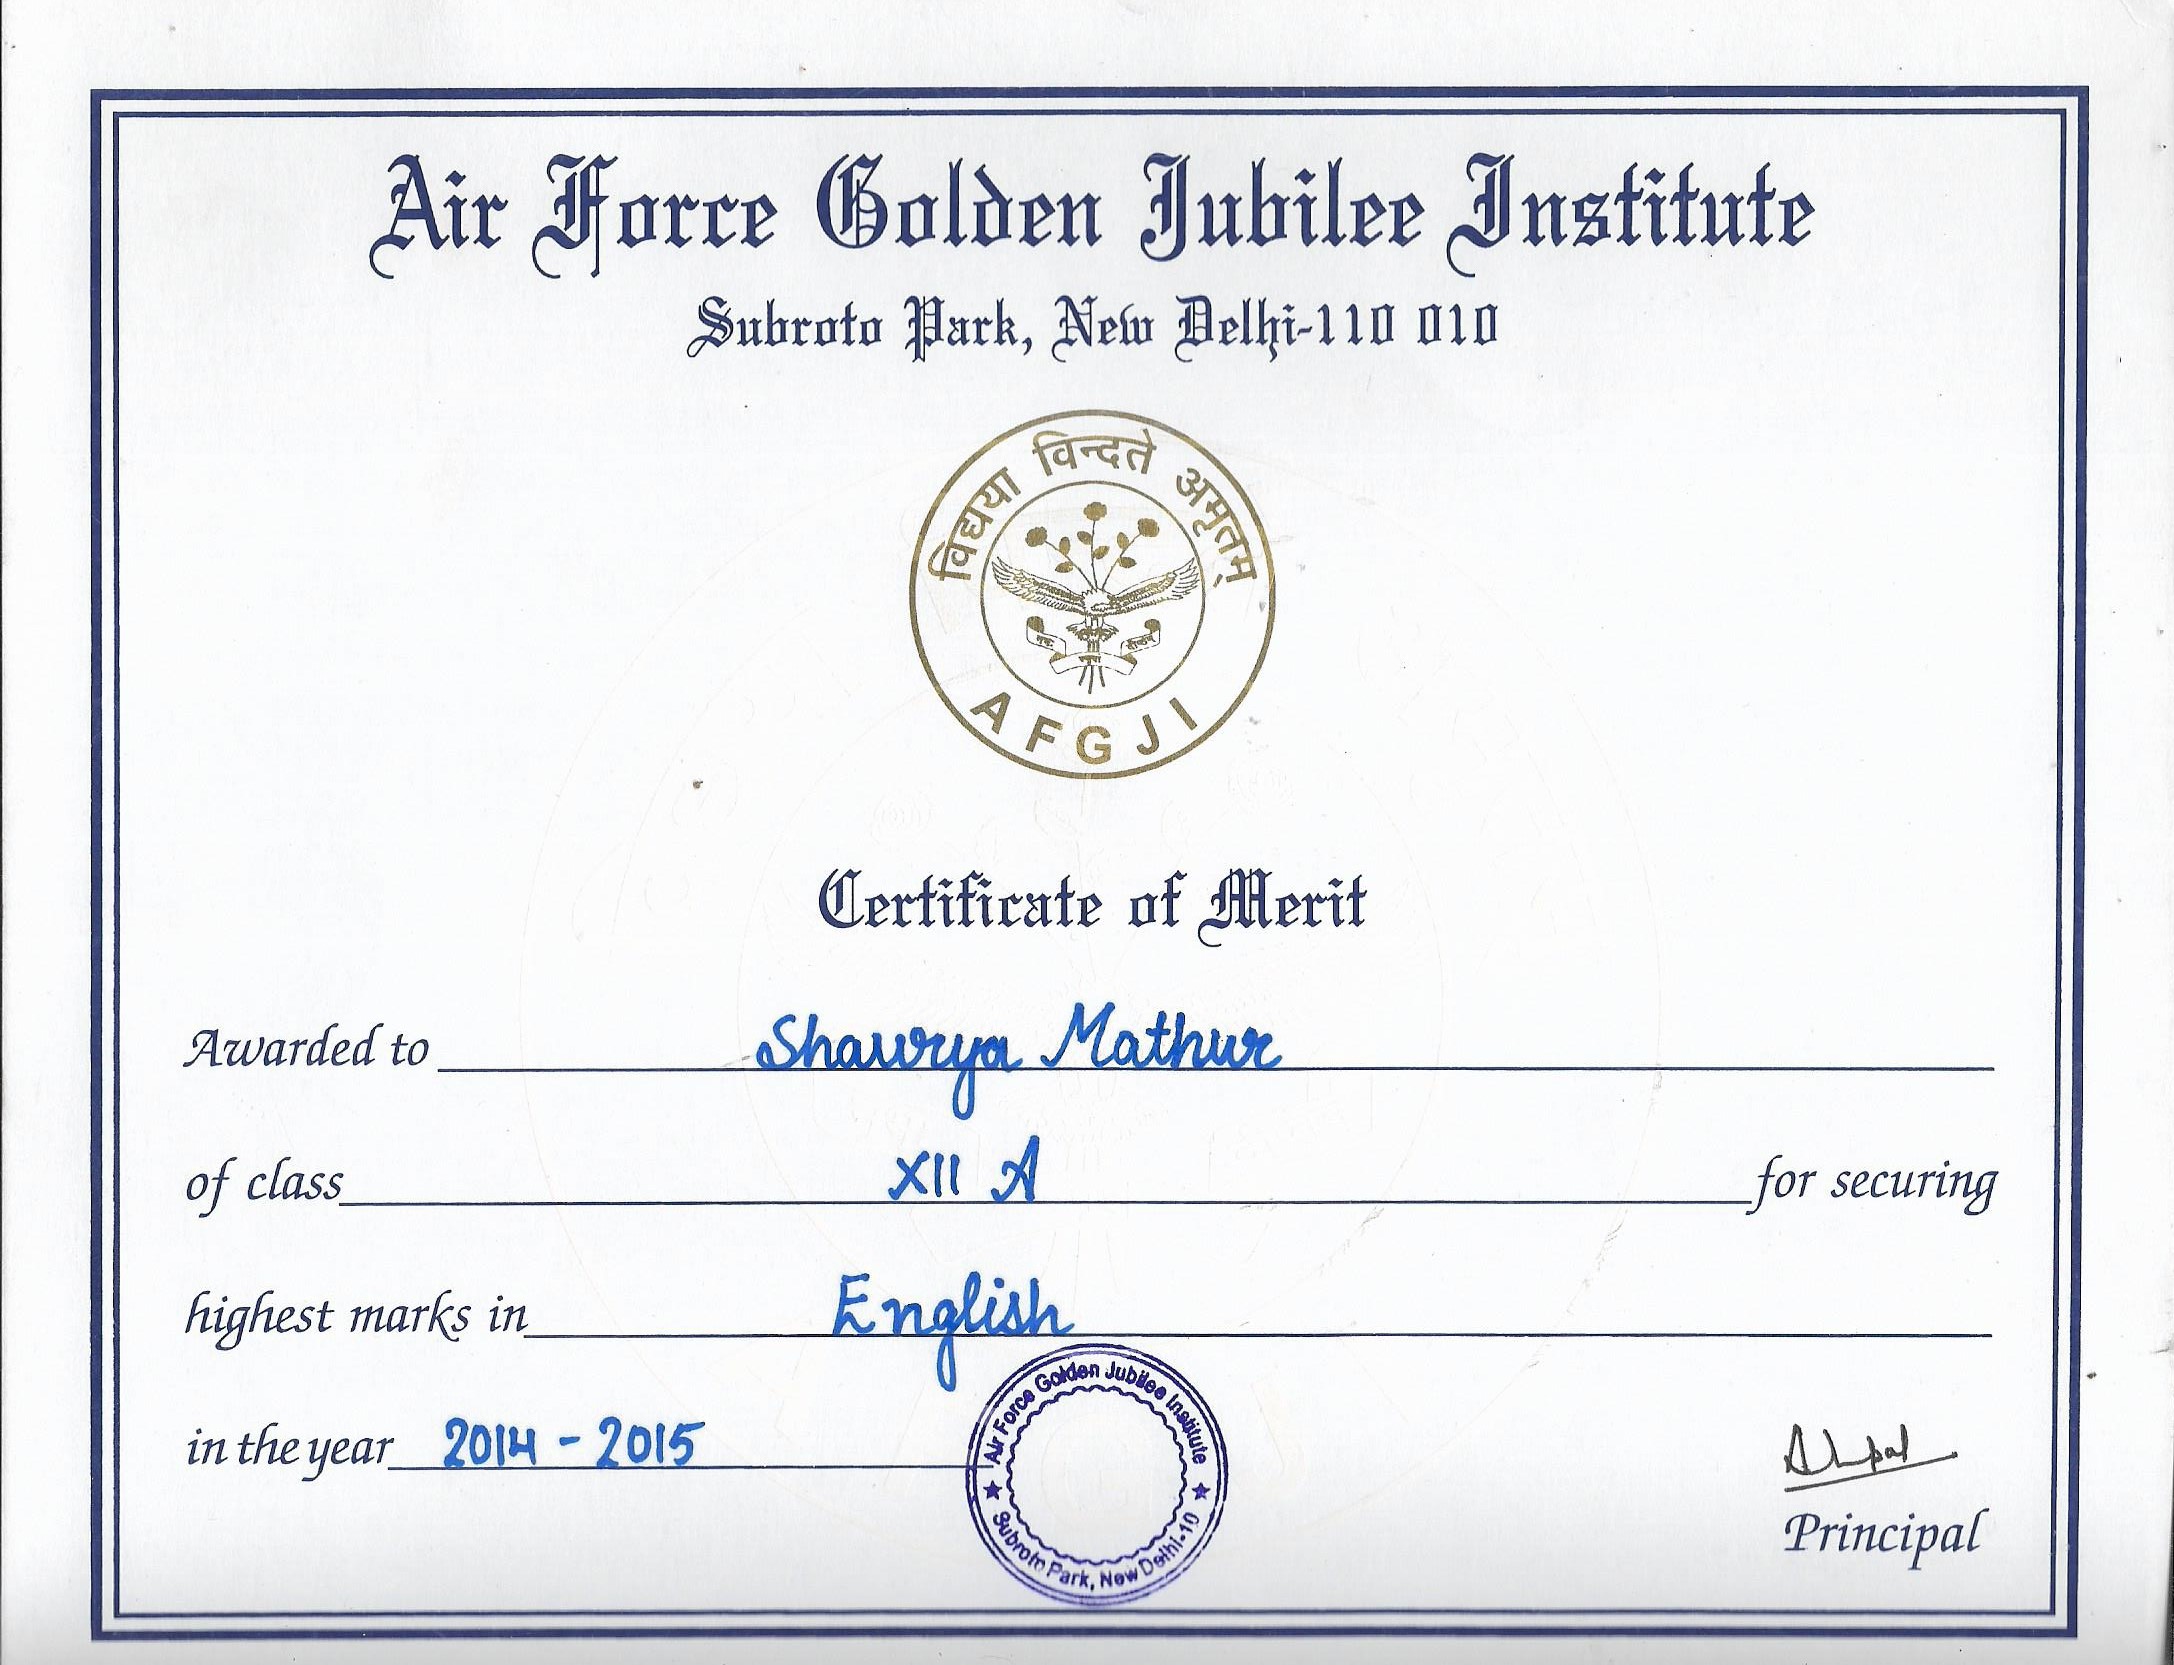 Air Force Golden Jubilee Institute
Subroto Park, New Delhi-110 010
विद्यया विन्दते अमृतम्
AFGJI
Certificate of Merit
Awarded to Shaurya Mathur
of class XII A for securing
highest marks in English
in the year 2014 - 2015
Air Force Golden Jubilee Institute
Subroto Park, New Delhi-10
Principal